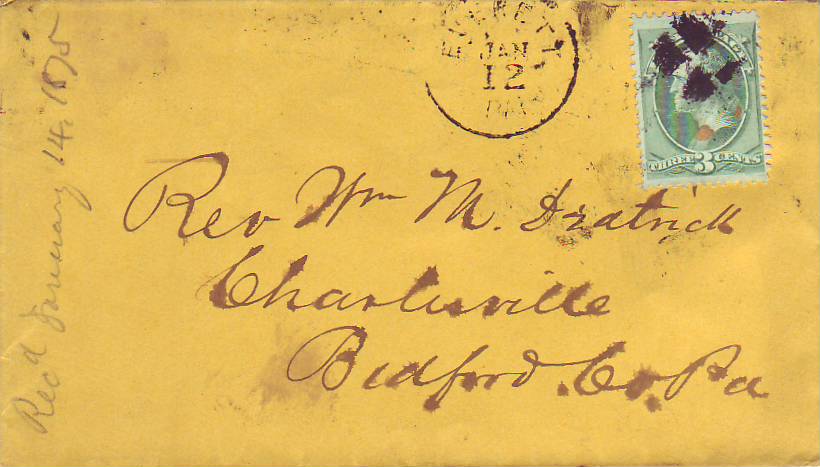 Recd January 14. 1875
EVERETT
JAN
12
THREE 3 CENTS
Rev Wm M. Diatrick
Charlesville
Bedford Co. Pa